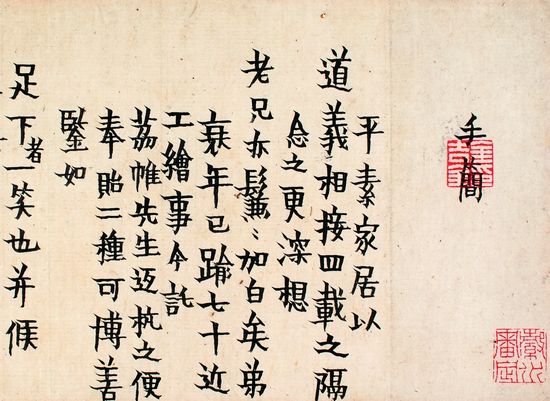 手簡
平素家居以
道義相接四載之隔
念之更深想
老兄亦鬑〻加白矣弟
衰年已踰七十近
工繪事今託
荔帷先生返杭之便
奉貽二種可博善
鑒如
足下者一笑也并候